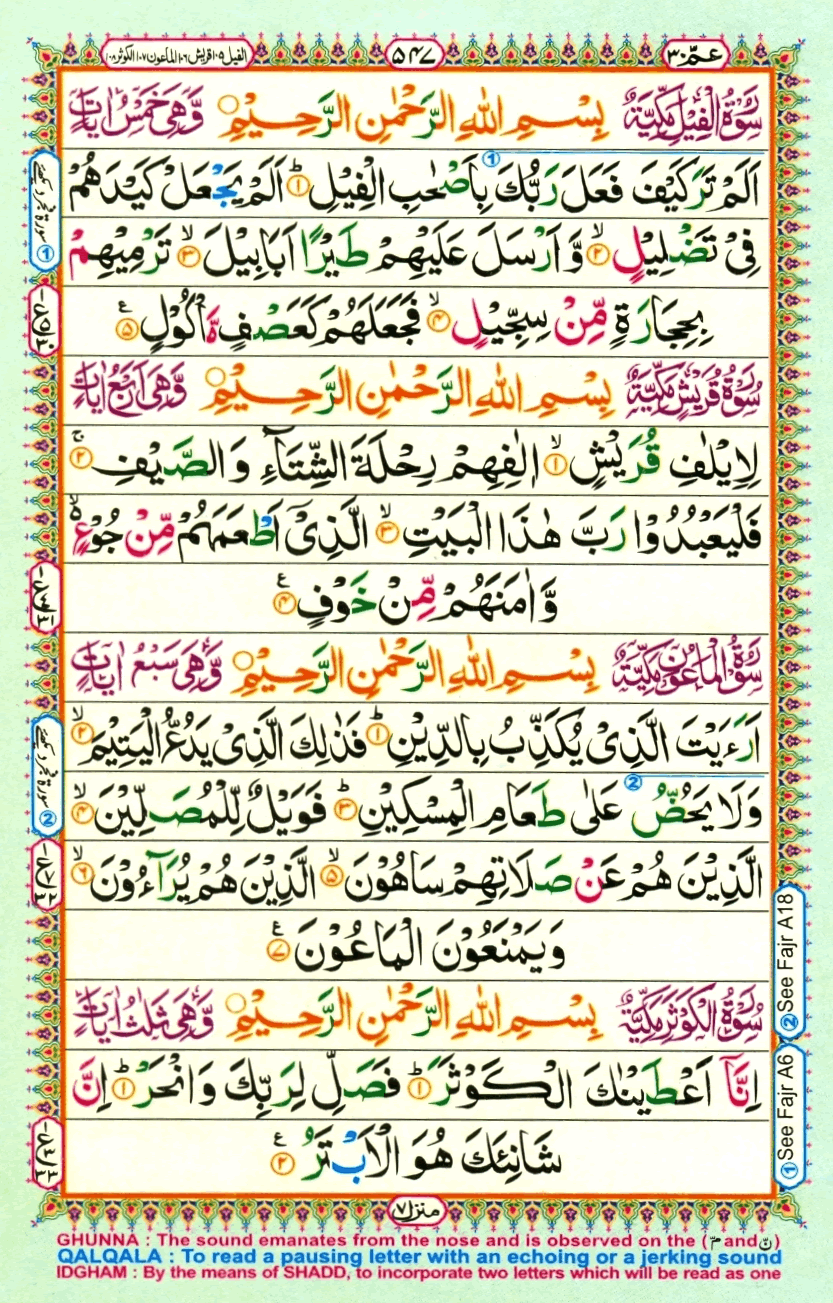 الفیل ۱۰۵ قریش ۱۰۶ الماعون ۱۰۷ الکوثر ۱۰۸
۵۴۷
عمّ ۳۰
سُوْرَةُ الْفِيْلِ مَكِّيَّةٌ بِسْمِ اللّٰهِ الرَّحْمٰنِ الرَّحِيْمِ وَّهِىَ خَمْسُ اٰيَاتٍ
اَلَمْ تَرَ كَيْفَ فَعَلَ رَبُّكَ بِاَصْحٰبِ الْفِيْلِ ؕ ۱ اَلَمْ يَجْعَلْ كَيْدَهُمْ
فِىْ تَضْلِيْلٍ ۙ ۲ وَّاَرْسَلَ عَلَيْهِمْ طَيْرًا اَبَابِيْلَ ۙ ۳ تَرْمِيْهِمْ
بِحِجَارَةٍ مِّنْ سِجِّيْلٍ ۙ ۴ فَجَعَلَهُمْ كَعَصْفٍ مَّاْكُوْلٍ ۵
سُوْرَةُ قُرَيْشٍ مَكِّيَّةٌ بِسْمِ اللّٰهِ الرَّحْمٰنِ الرَّحِيْمِ وَّهِىَ اَرْبَعُ اٰيَاتٍ
لِاِيْلٰفِ قُرَيْشٍ ۙ ۱ اٖلٰفِهِمْ رِحْلَةَ الشِّتَآءِ وَالصَّيْفِ ۚ ۲
فَلْيَعْبُدُوْا رَبَّ هٰذَا الْبَيْتِ ۙ ۳ الَّذِىْٓ اَطْعَمَهُمْ مِّنْ جُوْعٍ ۙ
وَّاٰمَنَهُمْ مِّنْ خَوْفٍ ۴
سُوْرَةُ الْمَاعُوْنِ مَكِّيَّةٌ بِسْمِ اللّٰهِ الرَّحْمٰنِ الرَّحِيْمِ وَّهِىَ سَبْعُ اٰيَاتٍ
اَرَءَيْتَ الَّذِىْ يُكَذِّبُ بِالدِّيْنِ ؕ ۱ فَذٰلِكَ الَّذِىْ يَدُعُّ الْيَتِيْمَ ۙ ۲
وَلَا يَحُضُّ عَلٰى طَعَامِ الْمِسْكِيْنِ ؕ ۳ فَوَيْلٌ لِّلْمُصَلِّيْنَ ۙ ۴
الَّذِيْنَ هُمْ عَنْ صَلَاتِهِمْ سَاهُوْنَ ۙ ۵ الَّذِيْنَ هُمْ يُرَآءُوْنَ ۙ ۶
وَيَمْنَعُوْنَ الْمَاعُوْنَ ۷
سُوْرَةُ الْكَوْثَرِ مَكِّيَّةٌ بِسْمِ اللّٰهِ الرَّحْمٰنِ الرَّحِيْمِ وَّهِىَ ثَلٰثُ اٰيَاتٍ
اِنَّآ اَعْطَيْنٰكَ الْكَوْثَرَ ؕ ۱ فَصَلِّ لِرَبِّكَ وَانْحَرْ ؕ ۱ اِنَّ
شَانِئَكَ هُوَ الْاَبْتَرُ ۲
منزل ۷
سورۃ فجر دیکھئے 1
سورۃ فجر دیکھئے 2
2 See Fajr A18
1 See Fajr A6
GHUNNA : The sound emanates from the nose and is observed on the (مّ and نّ)
QALQALA : To read a pausing letter with an echoing or a jerking sound
IDGHAM : By the means of SHADD, to incorporate two letters which will be read as one